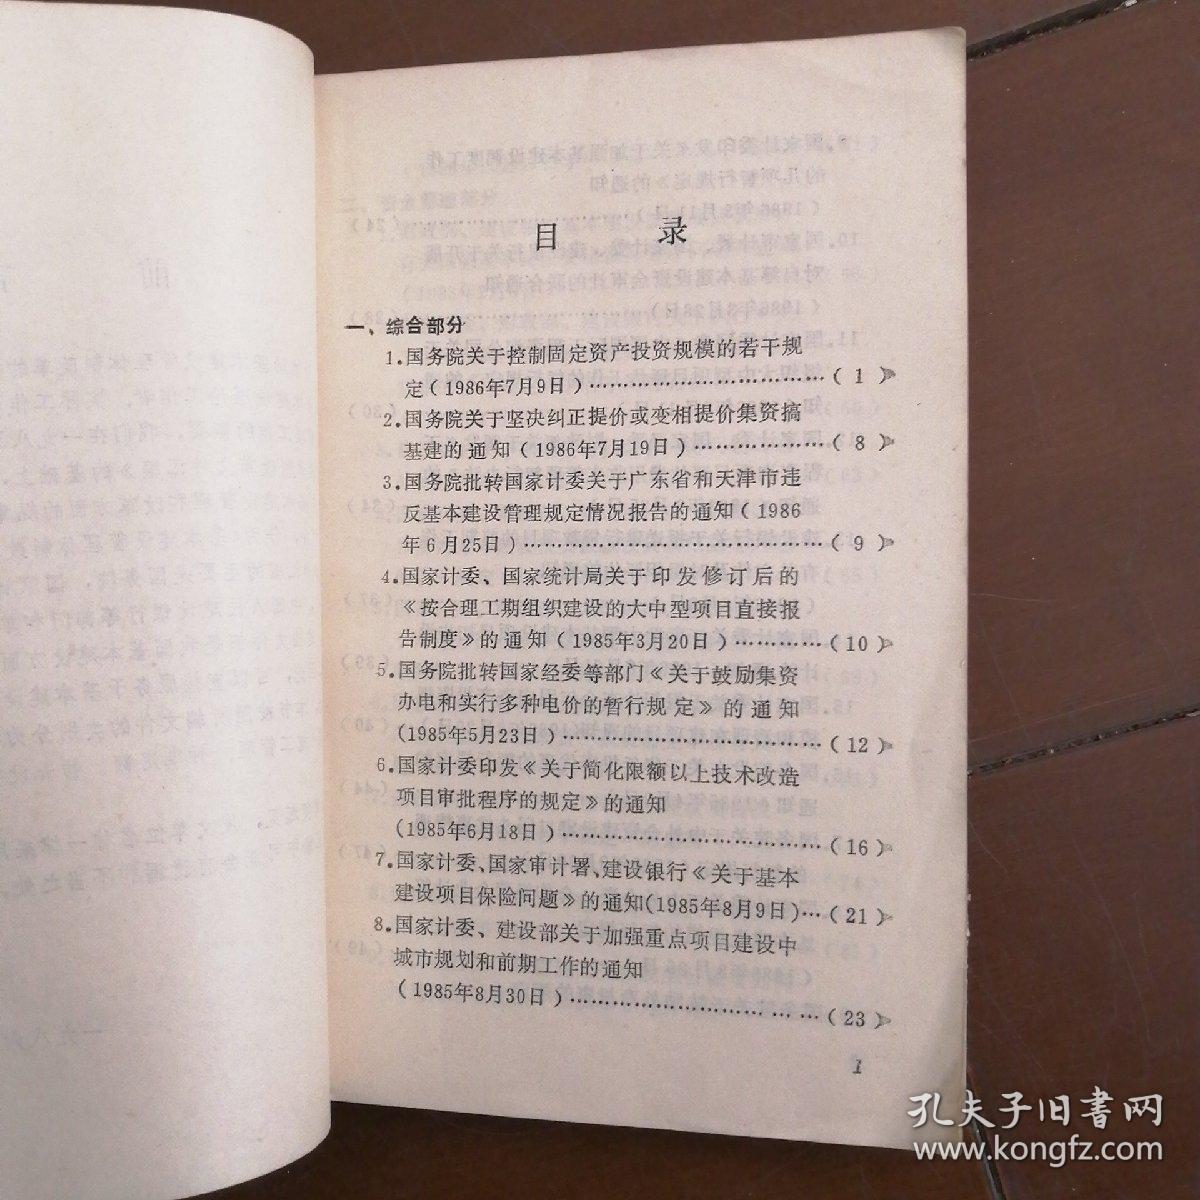 目 录
一、综合部分
1.国务院关于控制固定资产投资规模的若干规
定(1986年7月9日)……………………………(1)
2.国务院关于坚决纠正提价或变相提价集资搞
基建的通知(1986年7月19日)………………(8)
3.国务院批转国家计委关于广东省和天津市违
反基本建设管理规定情况报告的通知(1986
年6月25日)……………………………………(9)
4.国家计委、国家统计局关于印发修订后的
《按合理工期组织建设的大中型项目直接报
告制度》的通知(1985年3月20日)…………(10)
5.国务院批转国家经委等部门《关于鼓励集资
办电和实行多种电价的暂行规定》的通知
(1985年5月23日)……………………………(12)
6.国家计委印发《关于简化限额以上技术改造
项目审批程序的规定》的通知
(1985年6月18日)……………………………(16)
7.国家计委、国家审计署、建设银行《关于基本
建设项目保险问题》的通知(1985年8月9日)…(21)
8.国家计委、建设部关于加强重点项目建设中
城市规划和前期工作的通知
(1985年8月30日)……………………………(23)
1
孔夫子旧书网
www.kongfz.com